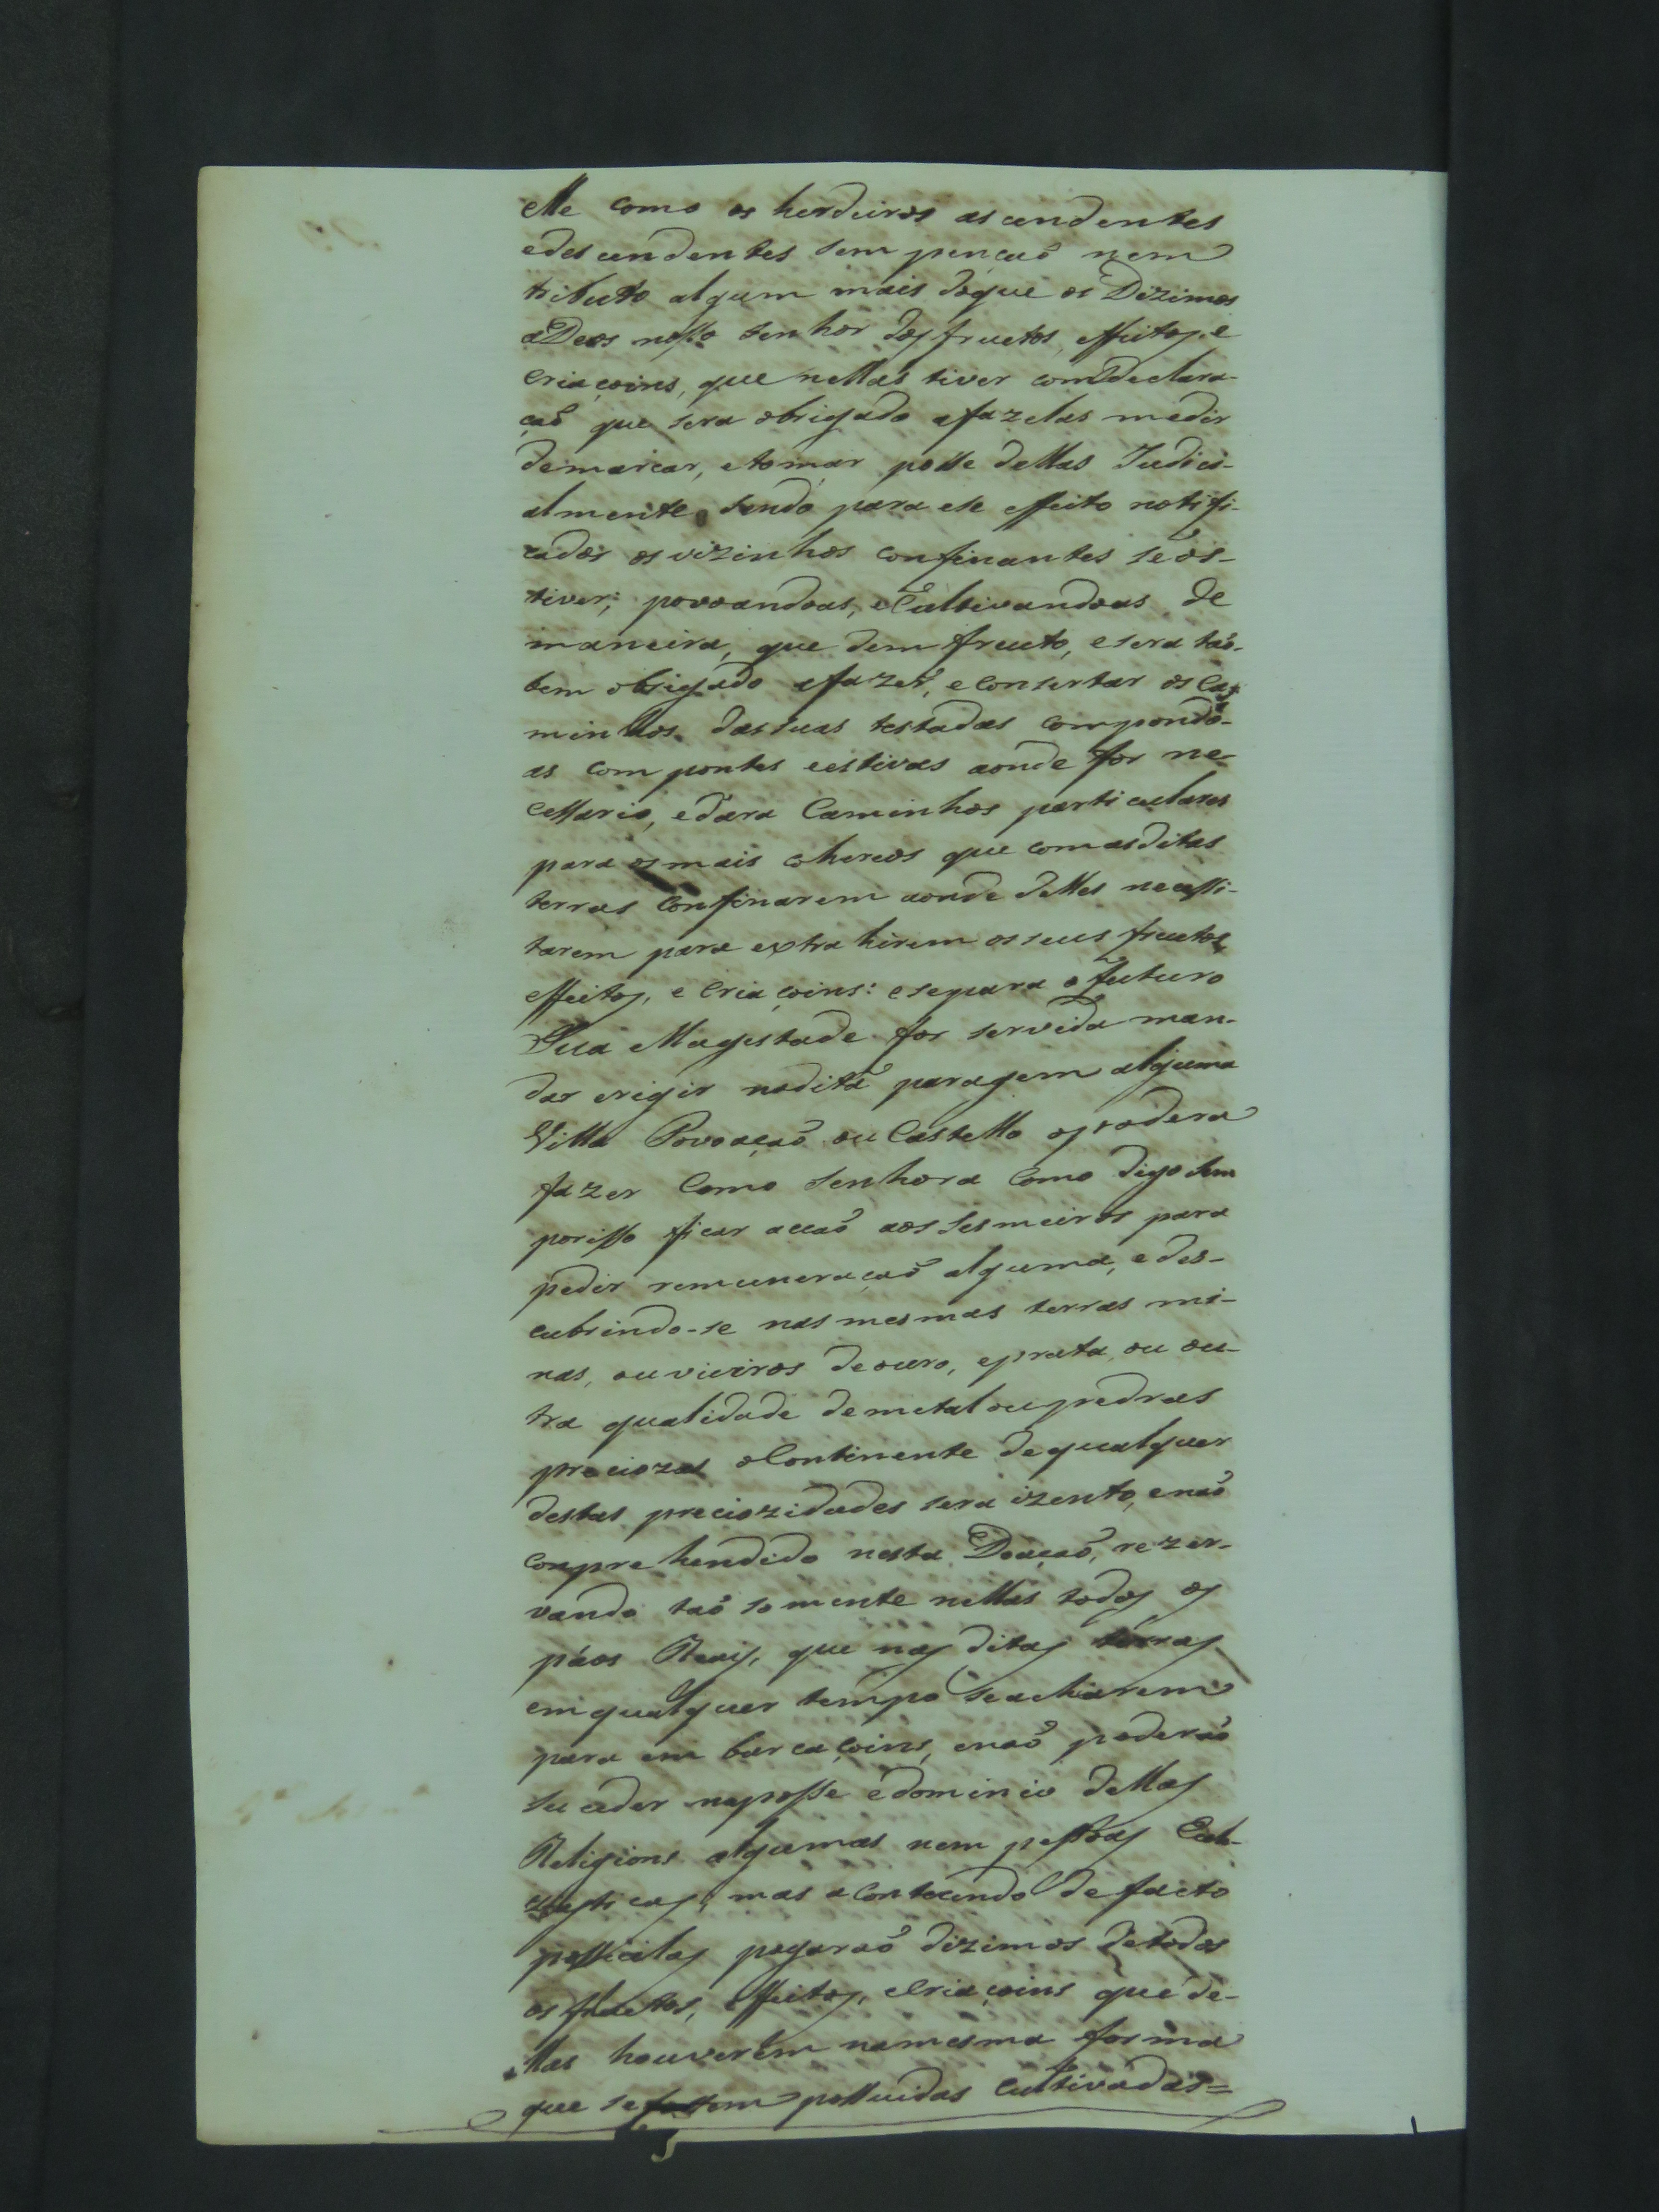 elle como os herdeiros ascendentes
edescendentes sem pençaõ nem
tributo algum mais doque os Dizimos
aDeos nosso senhor dos fructos, effeitos, e
criaçoins, que nellas tiver comdeclara-
çaõ que sera obrigado afazelas medir
demarcar, etomar posse dellas Judici-
almente sendo para ese effeito notifi-
cados os vizinhos confinantes seos-
tiver; povoandoas, eCultivandoas de
maneira, que dem fructo, esera taõ-
bem obrigado afazer, econsertar os Ca-
minhos dassuas testadas compondo-
as com pontes eestivas aonde for ne-
cessario, edara Caminhos particulares
para osmais cohereos que comasditas
terras Confinarem aonde delles necessi-
tarem para extrahirem osseus fructos,
effeitos, e Criaçoins: esepara ofuturo
Sua Magestade for servida man-
dar erigir nadita paragem alguma
Villa Povoaçaõ ou Castello opodera
fazer Como senhora Como digo sem
porisso ficar acçaõ aos sesmeiros para
pedir remuneraçaõ alguma, edes-
cubrindo-se nasmesmas terras mi-
nas, ouvieiros deouro, eprata, ou ou-
tra qualidade demetal oupedras
preciozas oContinente dequalquer
destas preciozidades sera izento, enaõ
comprehendido nesta Doaçaõ, rezer-
vando taõ somente nellas todos os
páos Reais, que nas ditas terras
emqualquer tempo seacharem
para embarcaçoins, enaõ poderaõ
suceder naposse edominio dellas
Religions algumas nem pessoas Ecle-
ziasticas; mas acontecendo defacto
possuilas pagaraõ dizimos detodos
os fructos, effeitos, eCriaçoins que de-
llas houverem namesma forma
que se fossem possuidas cultivadas=